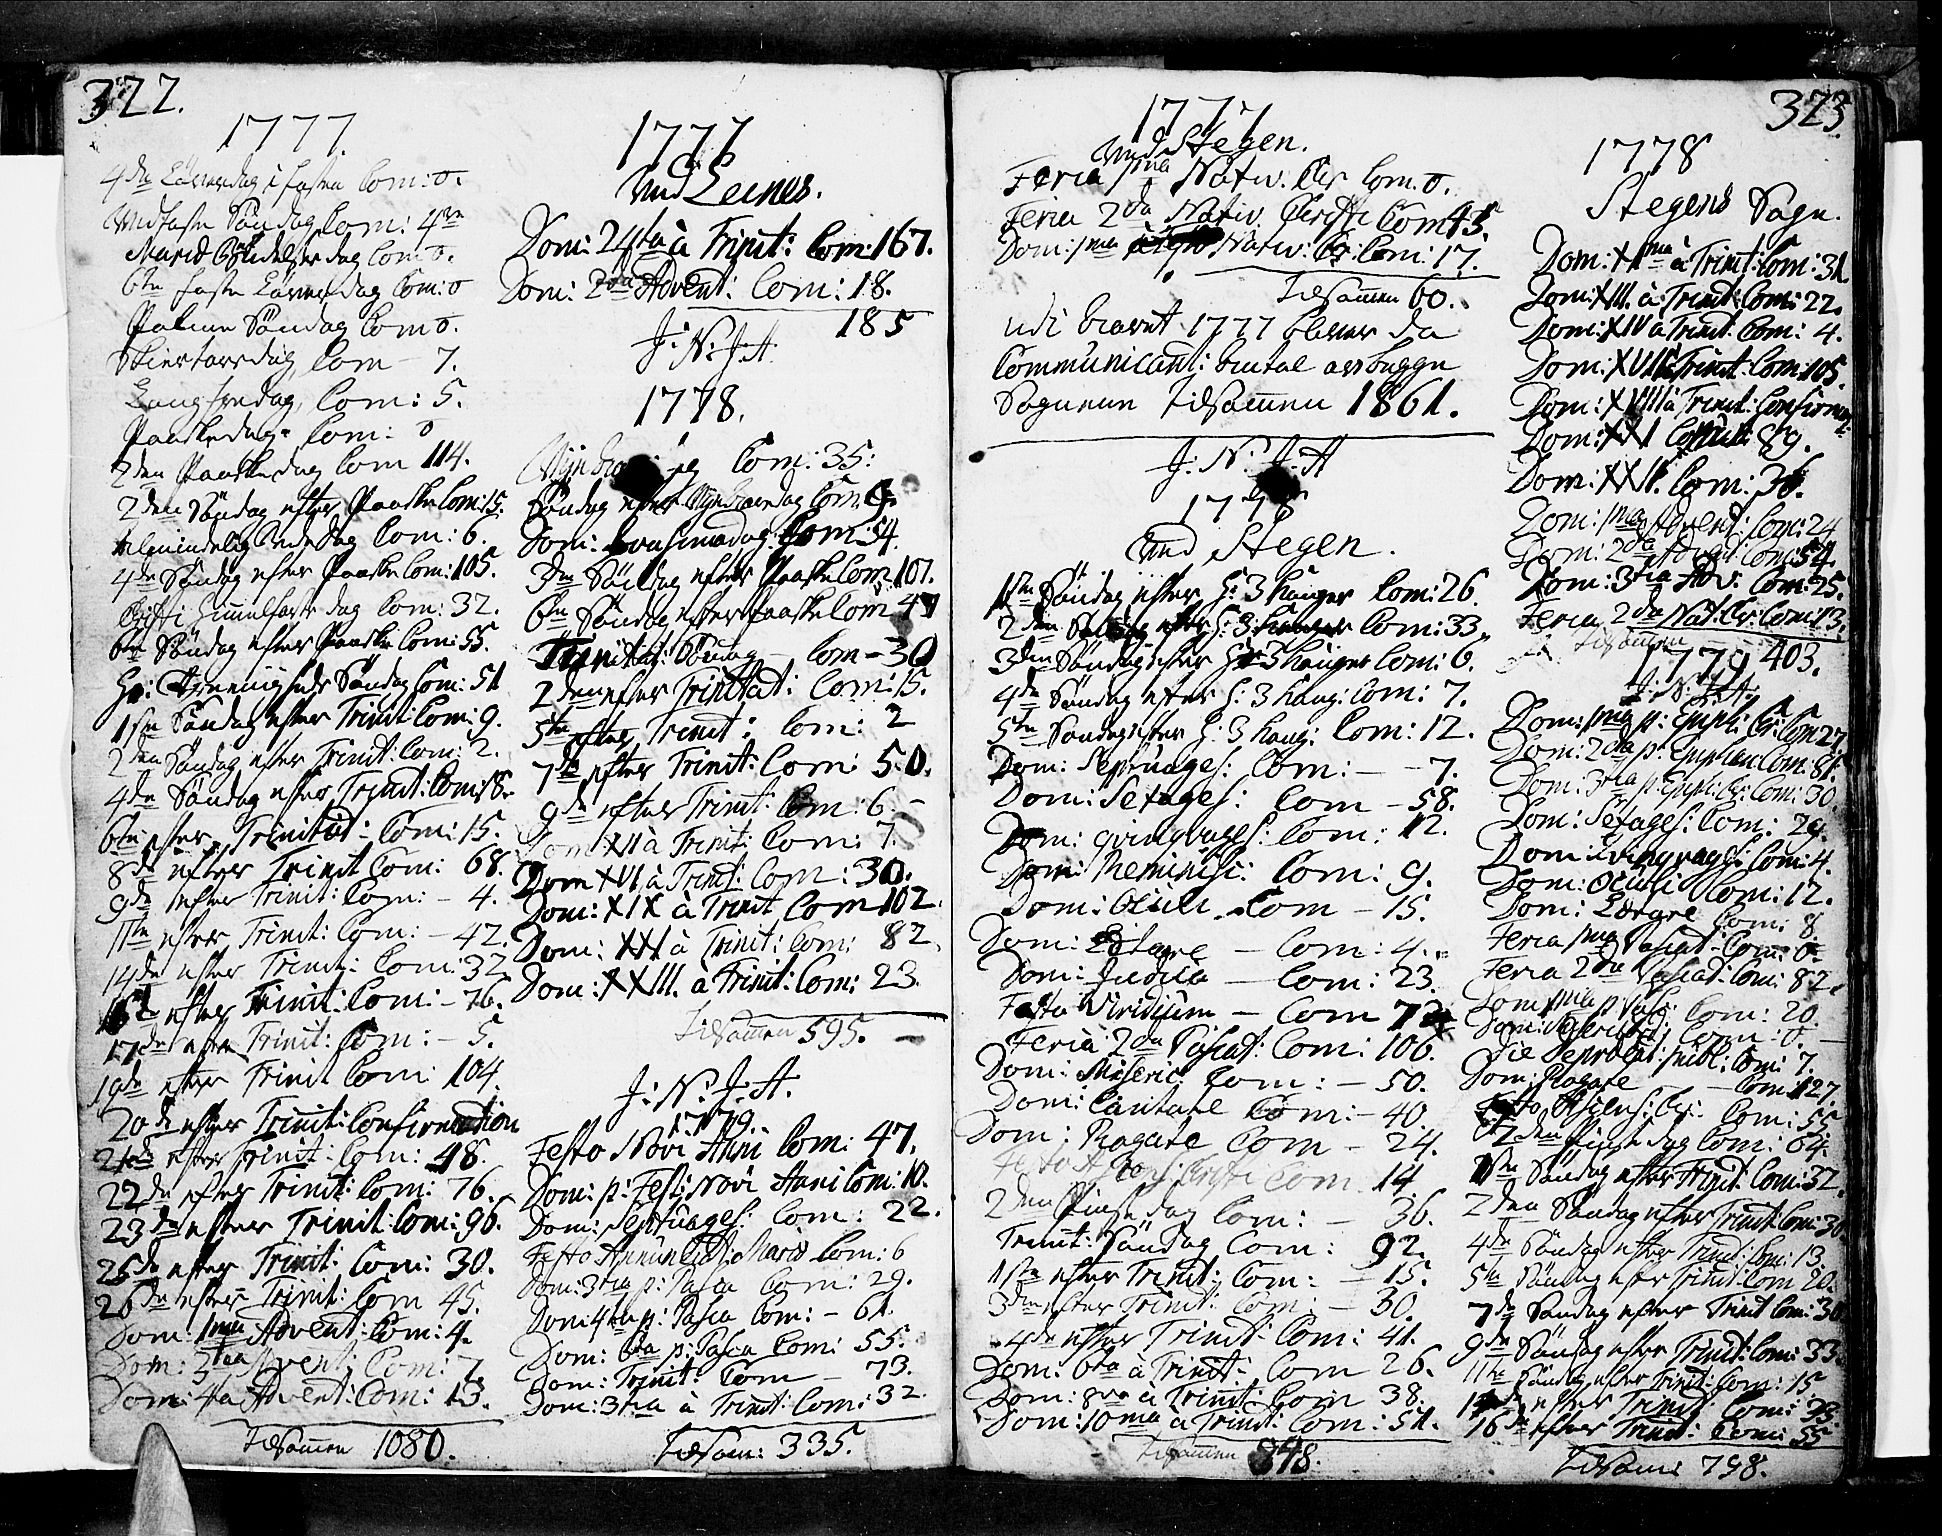 322.
1777.
4de Løverdag i Fasten Com: 0.
Midfaste Søndag Com: 4re
Mariæ Bebudelses dag Com 0.
6te Faste Løverdag Com: 0
Palme Søndag Com 0.
Skiertorsdag, Com - 7.
Langfredag, Com: 5.
Paaskedag. Com: 0
2den Paaskedag Com 114.
2den Søndag efter Paaske Com: 15.
Almindelig Bededag Com: 6.
4de Søndag efter Paaske Com: 105.
Christi Himmelfarts dag Com: 32.
6te Søndag efter Paaske Com: 55.
H: Treenigheds Søndag Com: 51
1ste Søndag efter Trinit: Com: 9.
2den Søndag efter Trinit: Com: 2.
4de Søndag efter Trinit: Com: 18.
6te efter Trinitat: Com: 15.
8de efter Trinit Com: 68.
9de efter Trinit: Com: - 4.
11te efter Trinit: Com: - 42.
14de efter Trinit: Com: 32.
efter Trinit: Com: - 76.
17de efter Trinit: Com: - 5.
19de efter Trinit Com: 104.
20de efter Trinit: Confirmation
21de efter Trinit: Com: 48.
22de efter Trinit: Com: 76.
23de efter Trinit: Com: 96.
25de efter Trinit: Com: 30.
26de efter Trinit: Com 45.
Dom: 1ma Advent: Com: 4.
Dom: 3tia Advent: Com: 7.
Dom: 4ta Advent: Com: 13.
Tilsammen 1080.
1777
Ved Leines.
Dom: 24ta à Trinit: Com: 167.
Dom: 2da Advent: Com: 18.
185
J: N: J: A
1778.
Com: 35:
Søndag efter Nytaarsdag Com: 6.
Dom: Com: 54.
3die Søndag efter Paaske Com: 107.
6te Søndag efter Paaske Com 47
Trinitat: Søndag - Com - 30
2den efter Trinitat: Com: 15.
5te efter Trinit: Com: 2
7de efter Trinit: Com: 50.
9de efter Trinit: Com: 6. -
Dom XII à Trinit: Com: 7.
Dom XVI à Trinit: Com: 30.
Dom: XIX à Trinit Com 102.
Dom: XXI à Trinit: Com: 82.
Dom: XXIII. à Trinit: Com: 23.
Tilsammen 595. -
J: N: J: A.
1779.
Festo Novi Anni Com: 47.
Dom: p: Fest: Novi Anni Com: 10.
Dom: Septuages: Com: 22.
Festo Annunciat: Mariæ Com: 6
Dom: 3tia p: Pasca Com: 29.
Dom: 4ta p: Pasca Com: - 61.
Dom: 6ta p: Pasca Com: 55.
Dom: Trinit: Com - 73.
Dom: 3tia à Trinit: Com: 32.
Tilsam: 335.
1777
Ved Stegen.
Feria 1ma Nativ. Chr Com. 0.
Feria 2da Nativ. Christi Com 43.
Dom: 1ma Nativ: Chr: Com: 17.
Tilsammen 60.
Udi Aaret 1777 bliver da
Communicant: Antal
Sognerne Tilsammen 1861.
J: N: J: A
1778
Ved Stegen.
1ste Søndag efter H: 3 Konger Com: 26.
2den Søndag efter H: 3 Konger Com: 33.
3die Søndag efter H: 3 Konger Com: 6.
4de Søndag efter H: 3 Kong: Com: 7.
5te Søndag efter H: 3 Kong: Com: 12.
Dom: Septuages: Com: - - 7.
Dom: Sexages: Com - 58.
Dom: Qvinqvages: Com: 12.
Dom: Reminisc: Com: 9.
Dom: Oculi. Com - 15.
Dom: Lætare - Com: 4.
Dom: Judica - Com: 23.
Festo Viridium - Com 72
Feria 2da Pascat: Com: 106.
Dom: Miseric: Com: - 50.
Dom: Cantate Com: - 40.
Dom: Rogate Com - 24.
Festo Ascens: Christi Com 14
2den Pinse dag Com: - 36.
Trinit: Søndag Com: 92.
1ste efter Trinit: Com: - 15.
3die efter Trinit: Com: - 30.
4de efter Trinit: Com: 41.
Dom: 6ta à Trinit: Com 26.
Dom: 8va à Trinit: Com 38.
Dom: 10ma à Trinit: Com: 51.
Tilsammen 848.
323
1778
Stegens Sogn.
Dom: XIma à Trinit: Com: 31.
Dom: XIII. à Trinit: Com: 22.
Dom: XIV à Trinit: Com: 4.
Dom: XVII à Trinit: Com: 105.
Dom: XVIII à Trinit: Confirmat:
Dom: XXI Com: 89.
Dom: XXII. Com: 36.
Dom: 1ma Advent: Com: 24
Dom: 2da Advent Com: 54.
Dom: 3tia Adv. Com: 25.
Feria 2da Nat: Chr: Com: 13.
Tilsammen 403.
1779
J: N: J: A.
Dom: 1ma p: Epiph: Chr: Com 27.
Dom: 2da p: Epiphan Com: 81.
Dom: 3tia p: Epiph: Chr: Com: 30.
Dom: Sexages: Com: 29.
Dom: Qvinqvages: Com: 4.
Dom: Oculi Com: 12.
Dom: Lætare Com: 8
Feria 1ma Pascat: Com: 0.
Feria 2da Pascat: Com: 82.
Dom 1ma p: Pasc: Com: 20.
Dom: Misericord: Com - 0. -
Die Deprecat: publ: Com: 7.
Dom: Rogate - Com: 127.
Festo Ascens: Chr: Com: 55
2den Pinse dag Com: 64.
1ste Søndag efter Trinit: Com: 32.
2den Søndag efter Trinit: Com: 30
4de Søndag efter Trinit: Com: 13.
5te Søndag efter Trinit: Com 20.
7de Søndag efter Trinit Com: 30
9de Søndag efter Trinit: Com: 33.
11te Søndag efter Trinit: Com: 15.
efter Trinit: Com: 33.
16de efter Trinit: Com: 55
Tilsam: 798.